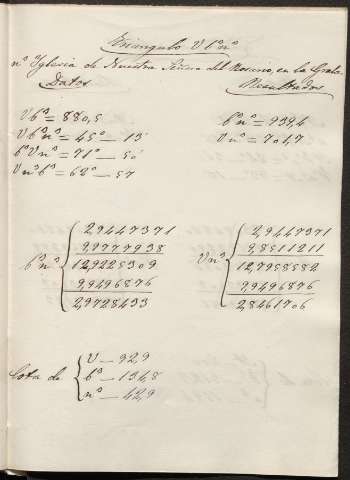 Triángulo V b° n°
n° Yglesia de Nuestra Señora del Rosario, en la Grata.
Datos
Resultados
Vb° = 880,5
b°n° = 939,4
Vb°n° = 45° — 15'
Vn° = 701,7
b°Vn° = 71° — 50'
Vn°b° = 62° — 57
b°n° { 2,9447371
9,9777938
12,9225309
9,9496876
2,9728433
Vn° { 2,9447371
9,8511211
12,7958582
9,9496876
2,8461706
Cota de { V — 92,9
b° — 134,8
n° — 42,9